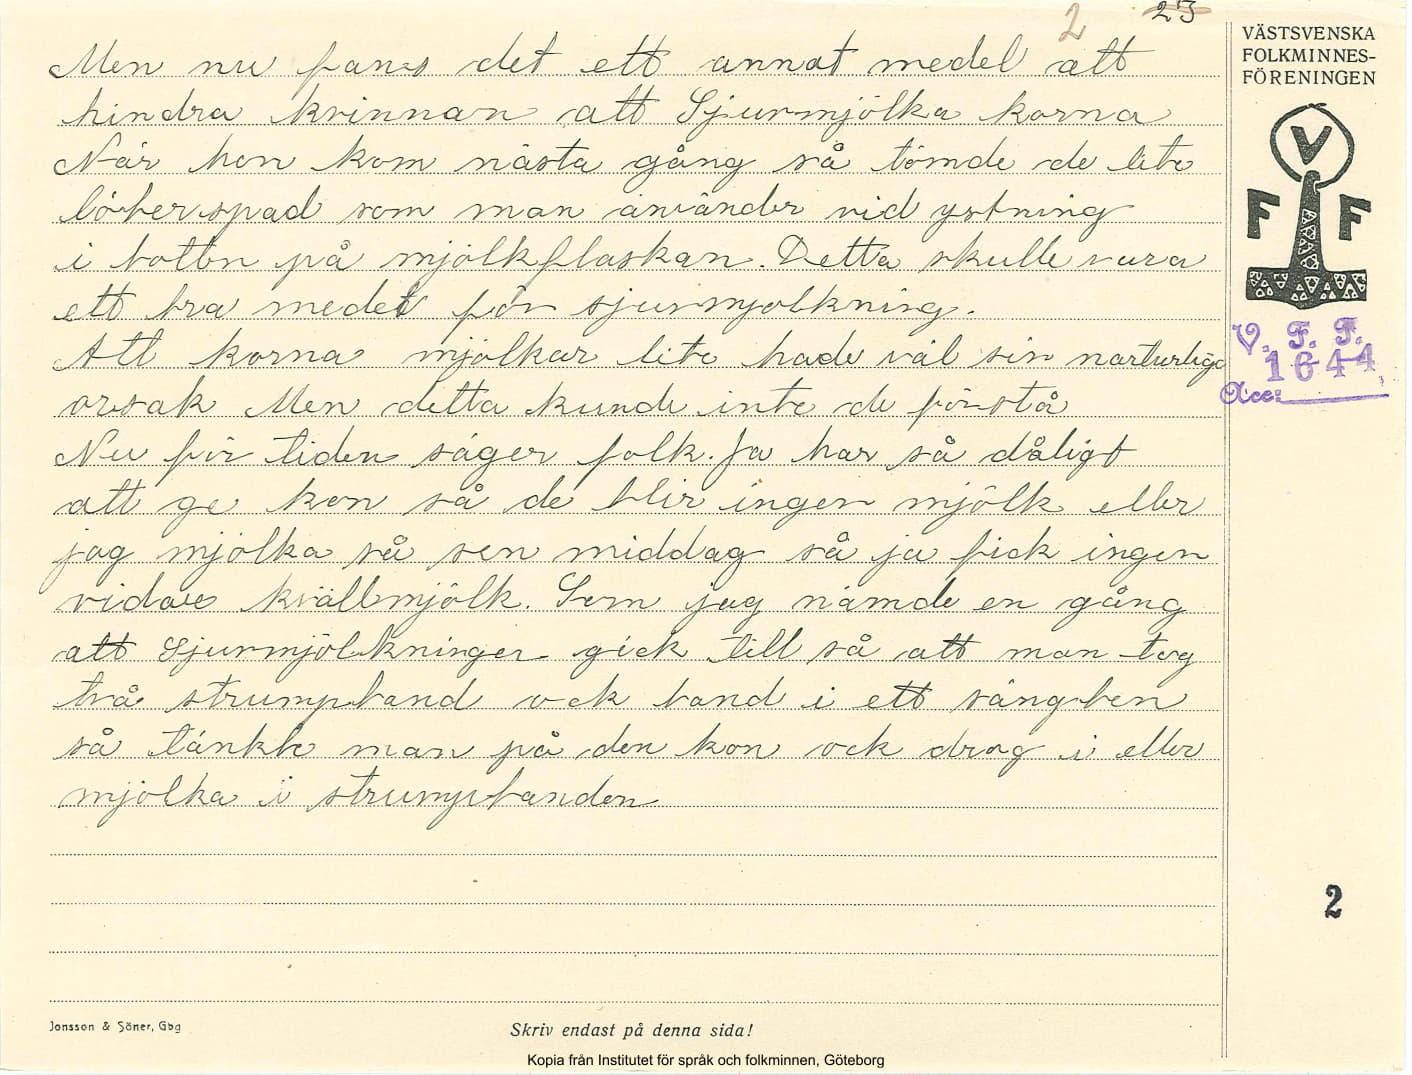 2 23
Men nu fans det ett annat medel att
hindra kvinnan att Sjurmjölka korna
När hon kom nästa gång så tömde de lite
löberspad som man använder vid ystning
i botten på mjölkflaskan. Detta skulle vara
ett bra medel för sjurmjolkning.
Att korna mjölkar lite hade väl sin narturliga
orsak Men detta kunde inte de förstå
Nu för tiden säger folk. Ja har så dåligt
att ge kon så de blir ingen mjölk eller
jag mjölka så sen middag så ja fick ingen
vidare kvällmjölk. Som jag nämde en gång
att Sjurmjölkningen gick till så att man tog
två strumpband ock band i ett sängben
så tänkte man på den kon ock drog i eller
mjölka i strumpbanden
VÄSTSVENSKA
FOLKMINNES-
FÖRENINGEN
V
F F
V. F. F.
1644
Acc:
2
Jonsson & Söner, Gbg
Skriv endast på denna sida!
Kopia från Institutet för språk och folkminnen, Göteborg